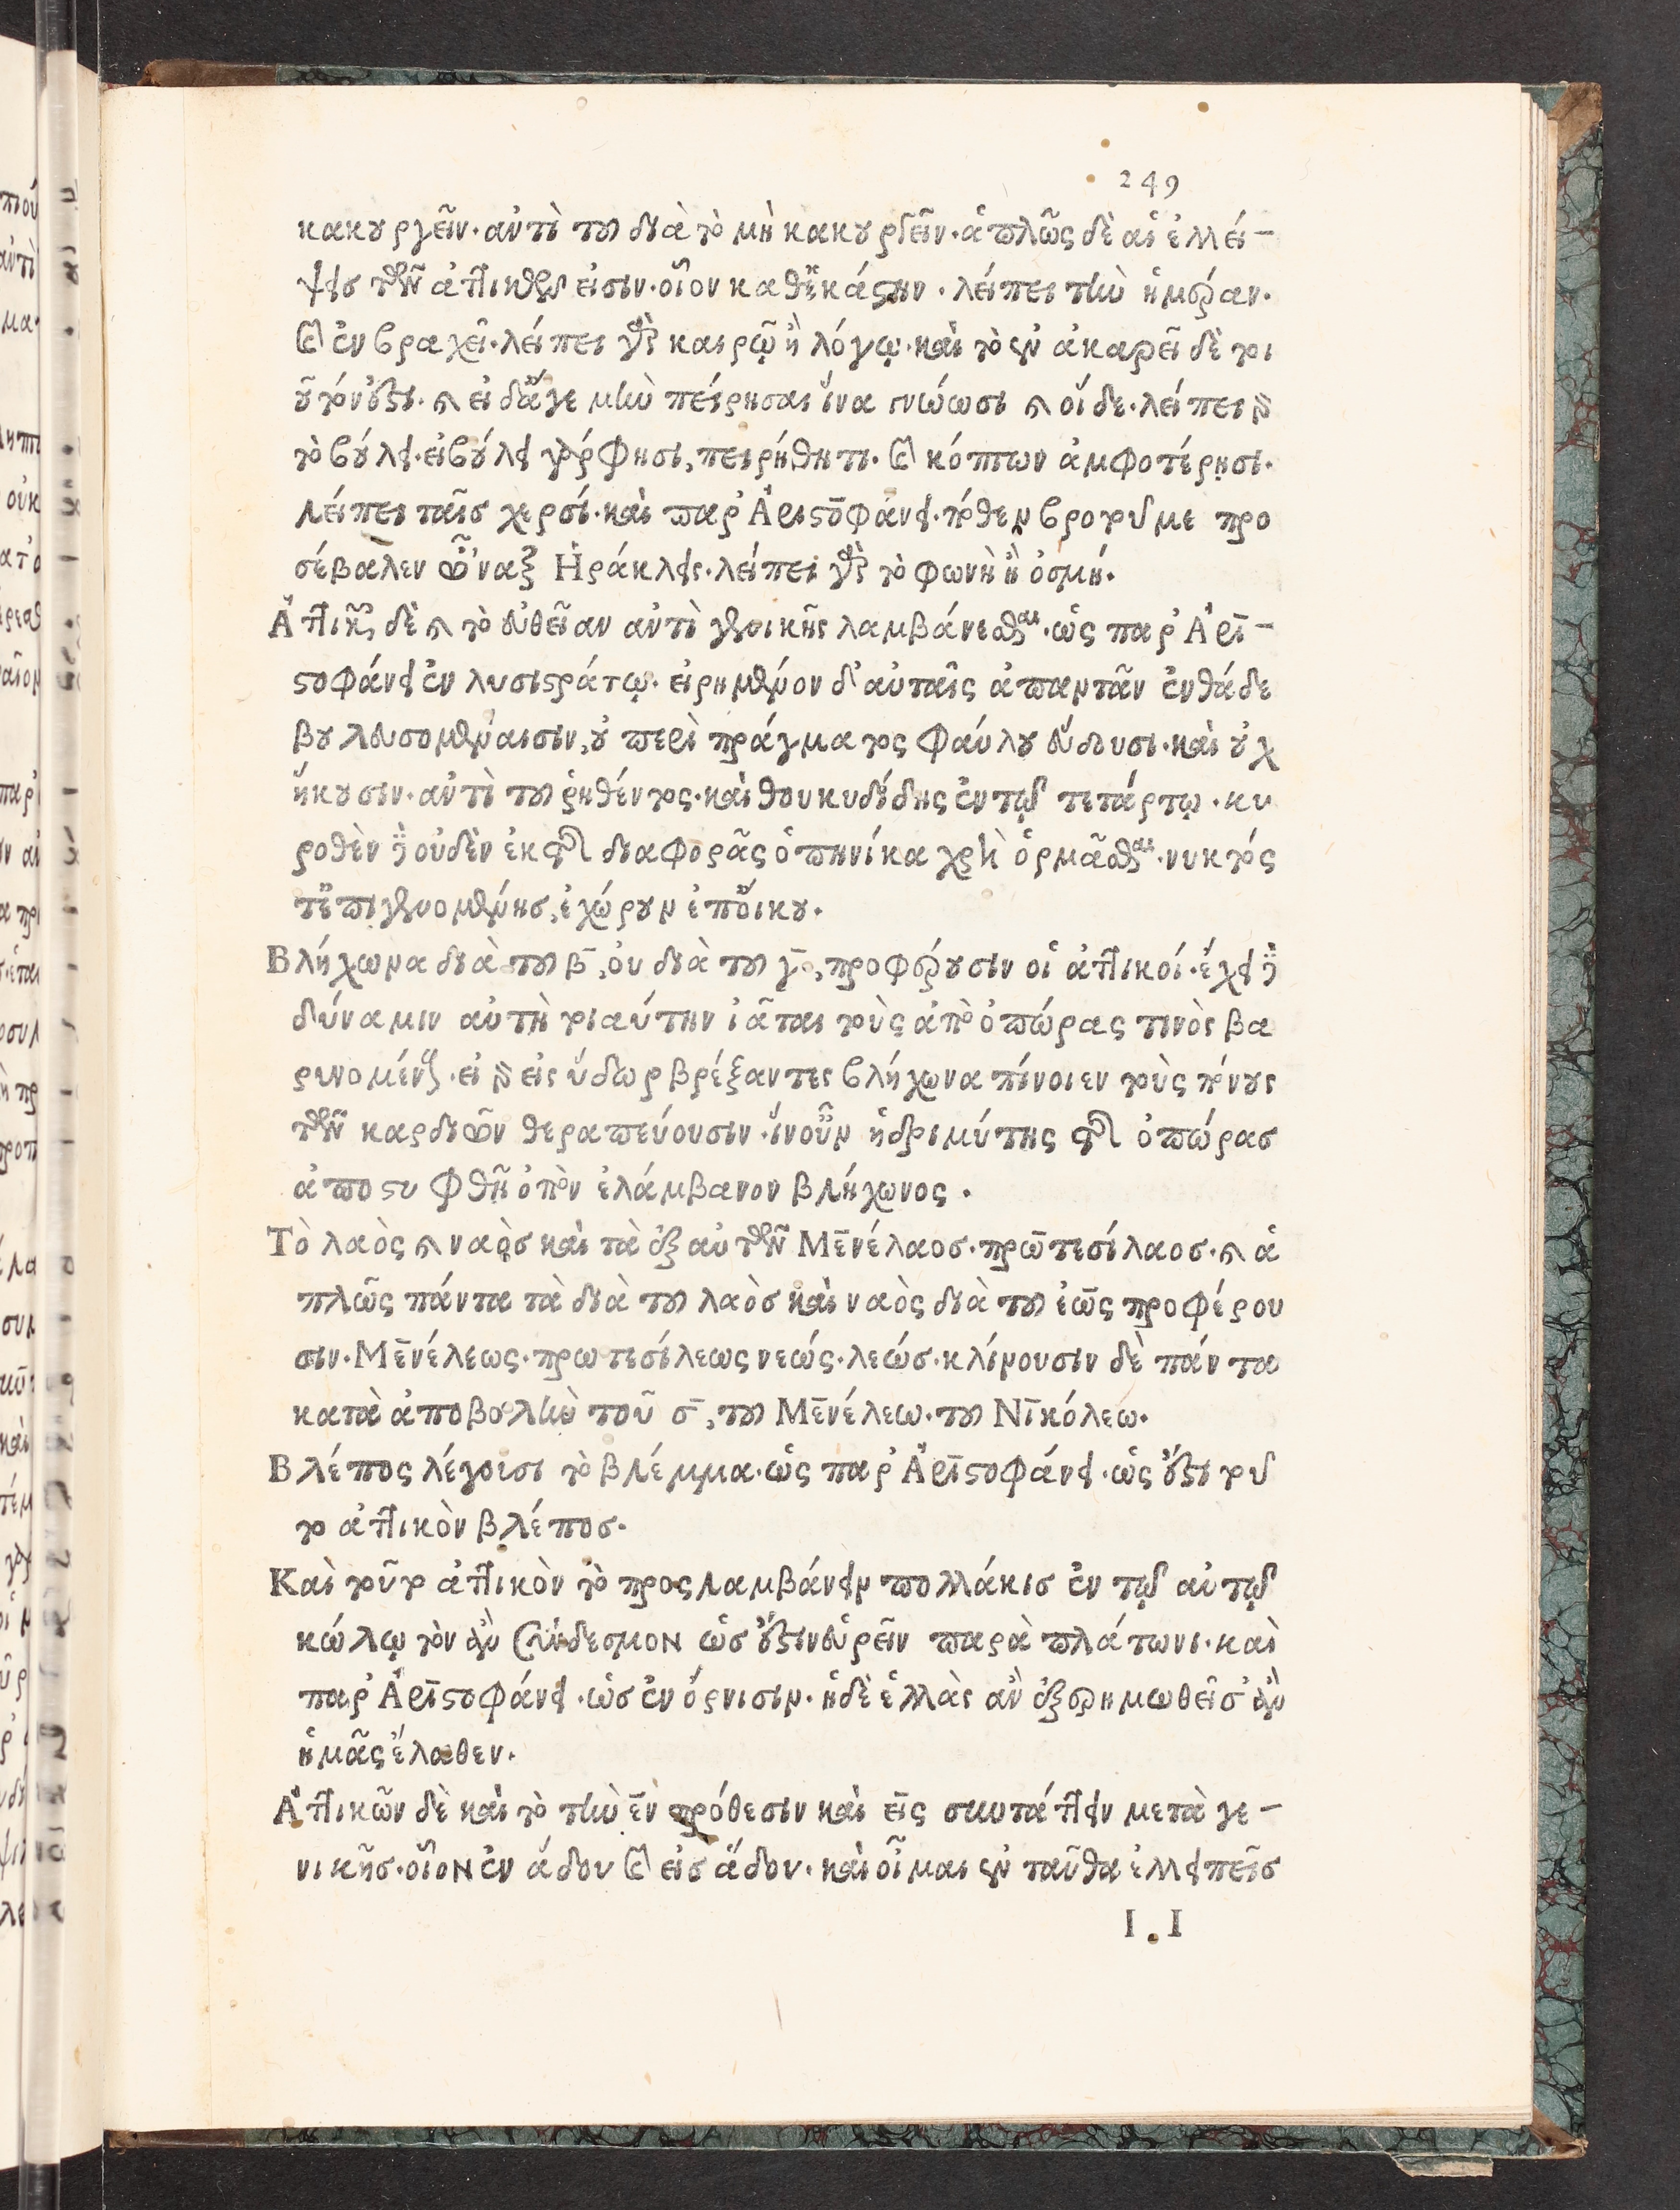 249
κακουργεῖν· ἀντὶ τοῦ διὰ τὸ μὴ κακουργεῖν· ἁπλῶς δὲ αἱ ἐλλεί-
ψεις τῶν ἀττικῶν εἰσιν· οἷον καθ' ἑκάστην· λείπει τὴν ἡμέραν·
καὶ ἐν βραχεῖ· λείπει γὰρ καιρῷ ἢ λόγῳ· καὶ τὸ ἐν ἀκαρεῖ δὲ τοι
οῦτόν ἐστι· καὶ εἰ δ' ἄγε μὴν πείρησαι ἵνα γνώωσι καὶ οἵδε· λείπει γὰρ
τὸ βούλει· εἰ βούλει γάρ φησι, πειρήθητι· καὶ κόπτων ἀμφοτέρῃσι·
λείπει ταῖς χερσί· καὶ παρ' Ἀριστοφάνει· πόθεν βροτοῦ με προ
σέβαλεν ὦναξ Ἡράκλεις· λείπει γὰρ τὸ φωνὴ ἢ ὀσμή.
Ἀττικὸν δὲ καὶ τὸ εὐθεῖαν ἀντὶ γενικῆς λαμβάνεσθαι· ὡς παρ' Ἀρι-
στοφάνει ἐν λυσιστράτῳ· εἰρημένον δ' αὐταῖς ἀπαντᾶν ἐνθάδε
βουλευσομέναισιν, οὐ περὶ πράγματος φαύλου εὕδουσι· καὶ οὐχ
ἥκουσιν· ἀντὶ τοῦ ῥηθέντος· καὶ θουκυδίδης ἐν τῷ τετάρτῳ· κυ
ροθὲν δὲ οὐδὲν ἐκ τῆς διαφορᾶς ὁπηνίκα χρὴ ὁρμᾶσθαι· νυκτός
τ' ἐπιγενομένης, ἐχώρουν ἐπ' οἴκου.
Βλήχωνα διὰ τοῦ β, οὐ διὰ τοῦ γ, προφέρουσιν οἱ ἀττικοί· ἔχει δὲ
δύναμιν αὐτὴ τοιαύτην ἰᾶται τοὺς ἀπὸ ὀπώρας τινὸς βα
ρυνομένους· εἰ γὰρ εἰς ὕδωρ βρέξαντες βλήχωνα πίνοιεν τοὺς πόνους
τῶν καρδιῶν θεραπεύουσιν· ἵν' οὖν ἡ δριμύτης τῆς ὀπώρας
ἀποστυφθῇ ὀπὸν ἐλάμβανον βλήχωνος.
Τὸ λαὸς καὶ ναὸς καὶ τὰ ἐξ αὐτῶν Μενέλαος· πρωτεσίλαος· καὶ ἁ
πλῶς πάντα τὰ διὰ τοῦ λαὸς καὶ ναὸς διὰ τοῦ εως προφέρου
σιν· Μενέλεως· πρωτεσίλεως νεώς· λεώς· κλίνουσιν δὲ πάντα
κατὰ ἀποβολὴν τοῦ σ, τοῦ Μενέλεω· τοῦ Νικόλεω.
Βλέπος λέγουσι τὸ βλέμμα· ὡς παρ' Ἀριστοφάνει· ὡς ἔστι τοῦ
το ἀττικὸν βλέπος.
Καὶ τοῦτο ἀττικὸν τὸ προσλαμβάνειν πολλάκις ἐν τῷ αὐτῷ
κώλῳ τὸν ἂν σύνδεσμον ὡς ἔστιν εὑρεῖν παρὰ πλάτωνι· καὶ
παρ' Ἀριστοφάνει· ὡς ἐν ὄρνισιν· ἡ δὲ ἑλλὰς ἂν ἐξερημωθεῖσ' ἂν
ἡμᾶς ἔλαθεν.
Ἀττικῶν δὲ καὶ τὸ τὴν ἐν πρόθεσιν καὶ εἰς συντάττειν μετὰ γε-
νικῆς· οἷον ἐν ἅδου καὶ εἰς ἅδου· καὶ οἶμαι ἐνταῦθα ἐλλειπεῖς
I . I